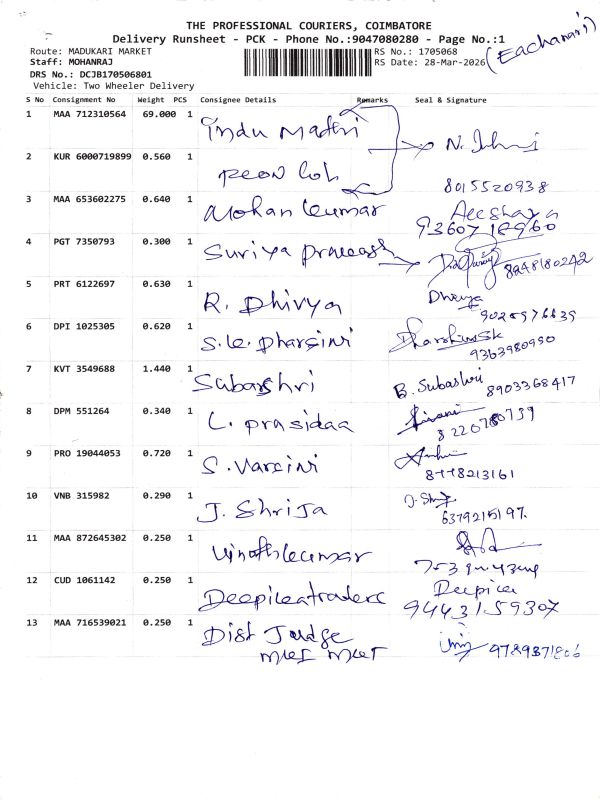 THE PROFESSIONAL COURIERS, COIMBATORE
Delivery Runsheet - PCK - Phone No.:9047080280 - Page No.:1
(Eachanari)
Route: MADUKARI MARKET RS No.: 1705068
Staff: MOHANRAJ RS Date: 28-Mar-2026
DRS No.: DCJB170506801
Vehicle: Two Wheeler Delivery
S No Consignment No Weight PCS Consignee Details Remarks Seal & Signature
1 MAA 712310564 69.000 1 Indu Mathi
N.
2 KUR 6000719899 0.560 1
8015520938
3 MAA 653602275 0.640 1 Mohan kumar
4 PGT 7350793 0.300 1 Suriya prakash 8248180242
5 PRT 6122697 0.630 1 R. Dhivya Dhivya
6 DPI 1025305 0.620 1 S.K. Dharsini
9363980950
7 KVT 3549688 1.440 1 Subashri B. Subashri 8903368417
8 DPM 551264 0.340 1 L. prasidaa
9 PRO 19044053 0.720 1 S. Varsini
8778213161
10 VNB 315982 0.290 1 J. Shrija
6379215197.
11 MAA 872645302 0.250 1 Vinothkumar
12 CUD 1061142 0.250 1 Deepikatraders Deepika
9443159307
13 MAA 716539021 0.250 1 Dist Judge 9789371806